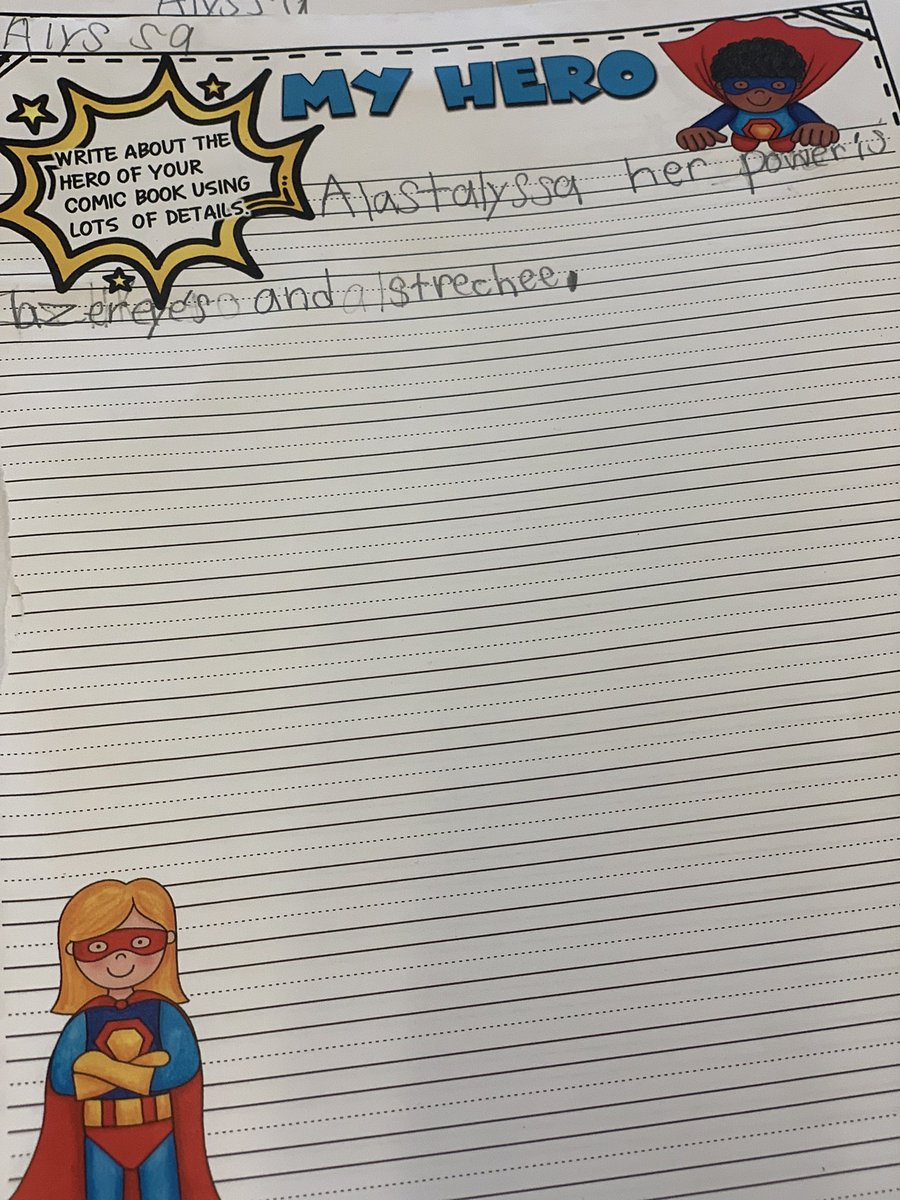 Alyssa
Alyssa
MY HERO
WRITE ABOUT THE
HERO OF YOUR
COMIC BOOK USING
LOTS OF DETAILS.
Alastalyssa her power is
lazereye's and strechee.